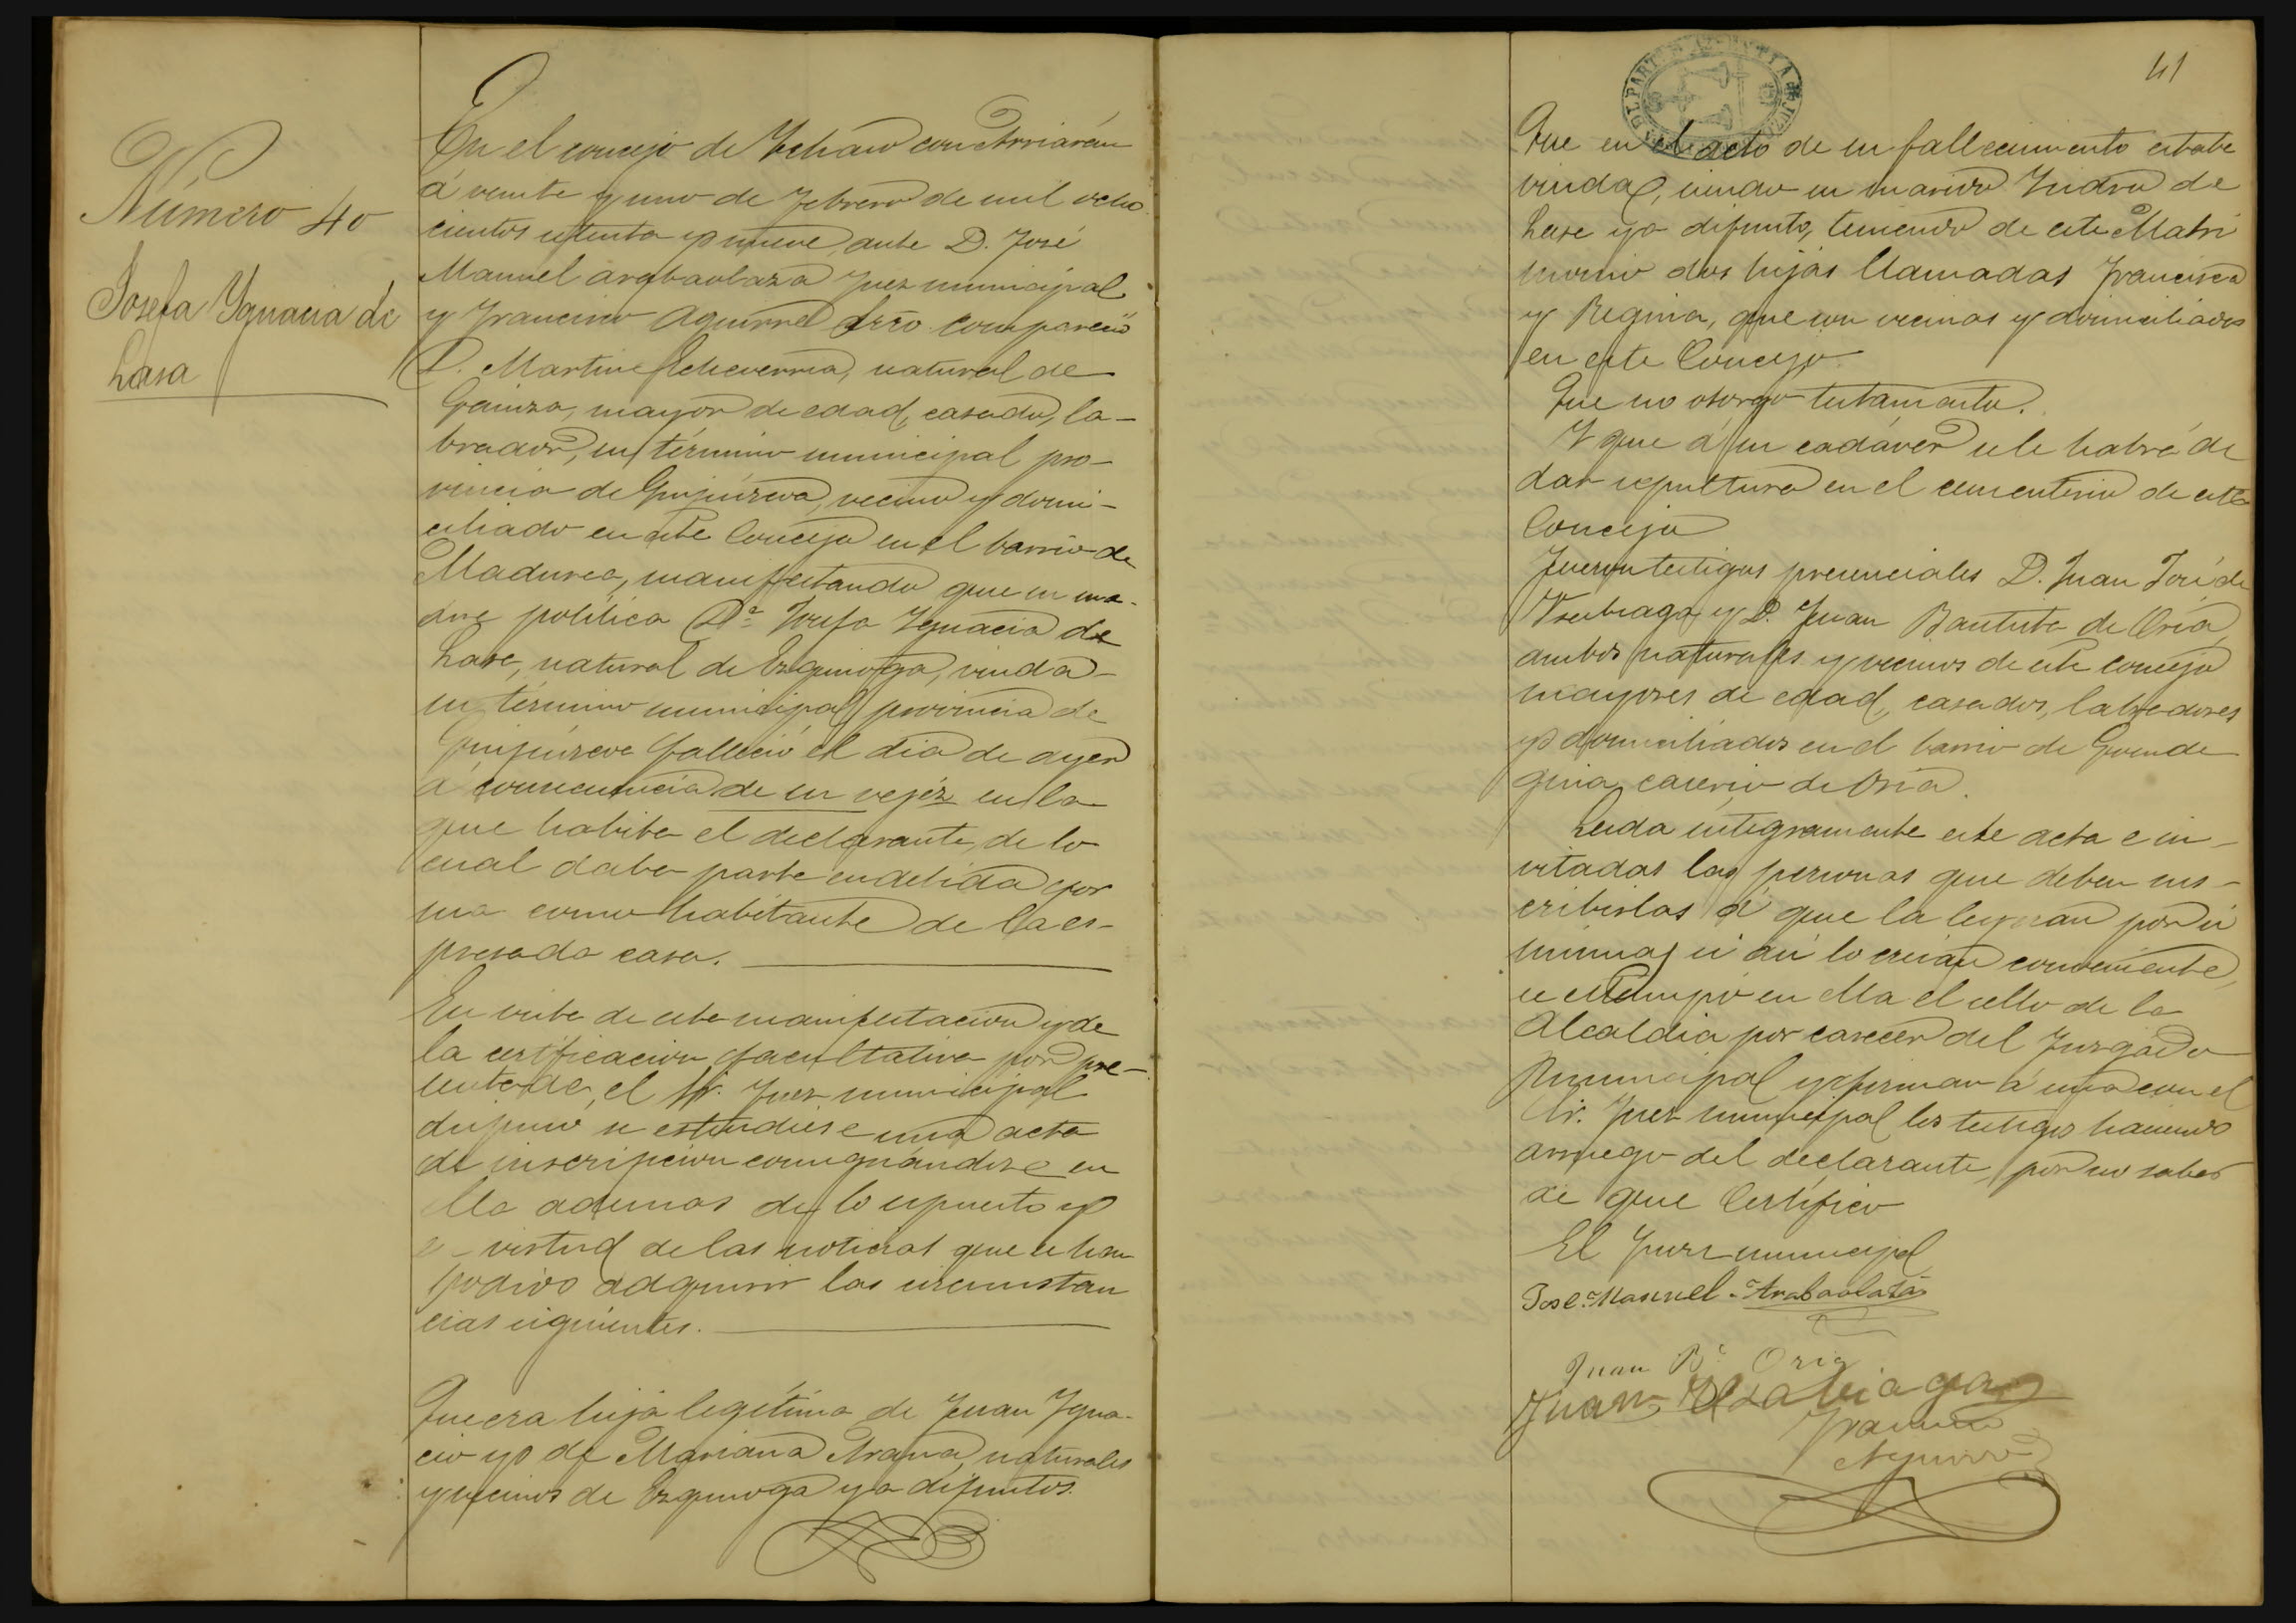 Número 40
Josefa Ygnacia de
Lasa
En el concejo de Ychaso con Arriarán
á veinte y uno de Febrero de mil ocho
cientos setenta y nueve, ante D. José
Manuel Arabaolaza Juez municipal
y Francisco Aguirre Srio. compareció
D. Martin Echeverria, natural de
Gainza, mayor de edad, casado, la-
brador, su término municipal pro-
vincia de Guipúzcoa, vecino y domi-
ciliado en este Concejo en el barrio de
manifestando que su ma-
dre política Dª Josefa Ygnacia de
Lasa, natural de Ezquioga, viuda
su término municipal provincia de
Guipúzcoa falleció el dia de ayer
á consecuencia de su vejéz en la
que habita el declarante, de lo
cual daba parte en debida for
ma como habitante de la es-
presada casa.
En vista de esta manifestacion y de
la certificacion facultativa por pre-
sentada, el Sr. Juez municipal
dispuso se estendiese una acta
de inscripcion consignándose en
ella ademas de lo espuesto y
en virtud de las noticias que se han
podido adquirir las circunstan
cias siguientes.
Que era hija legítima de Juan Ygna-
cio y de Mariana Arana, naturales
y vecinos de Ezquioga ya difuntos.
41
Que en el acto de su fallecimiento estaba
viuda, siendo su marido Ysidro de
Lasa ya difunto, teniendo de este Matri
monio dos hijas llamadas Francisca
y Regina, que son vecinas y domiciliadas
en este Concejo.
Que no otorgo testamento.
Y que á su cadáver se le habrá de
dar sepultura en el cementerio de este
Concejo
Fueron testigos presenciales D. Juan José de
y D. Juan Bautista de Oria,
ambos naturales y vecinos de este concejo
mayores de edad, casados, labradores
y domiciliados en el barrio de
caserio de Oria.
Leida íntegramente este acta e in-
vitadas las personas que deben sus-
cribirlas á que la leyeran por si
mismas si asi lo creian conveniente,
se estampó en ella el sello de la
Alcaldia por carecer del Juzgado
Municipal y firman á una con el
Sr. Juez municipal los testigos haciendo
arruego del declarante, por no saber
de que Certifico
El Juez municipal
Jose Manuel Arabaolaza
Juan Bª Oria
Juan
Francisco
Aguirre